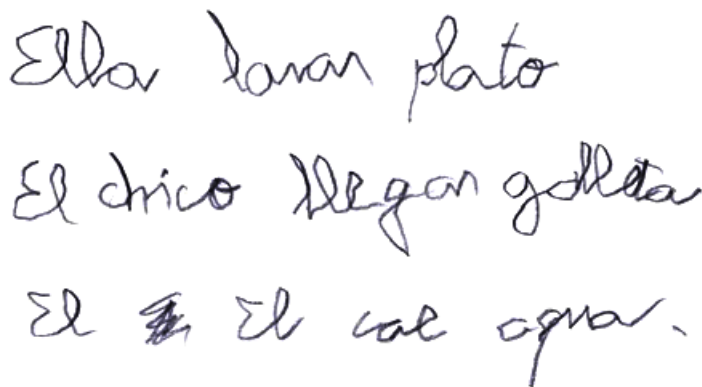 Ella lavar plato
El chico llegar galleta
El El cae agua.